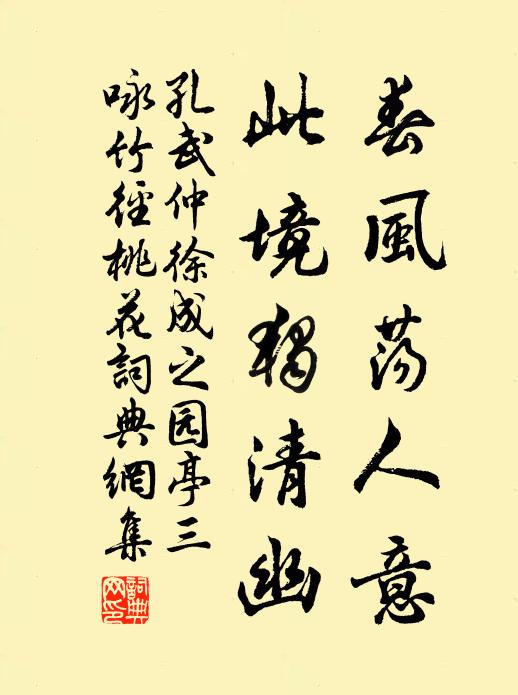 春風蕩人意
此境獨清幽
孔武仲徐成之园亭三
咏竹徑桃花詞典網集
詞典網印